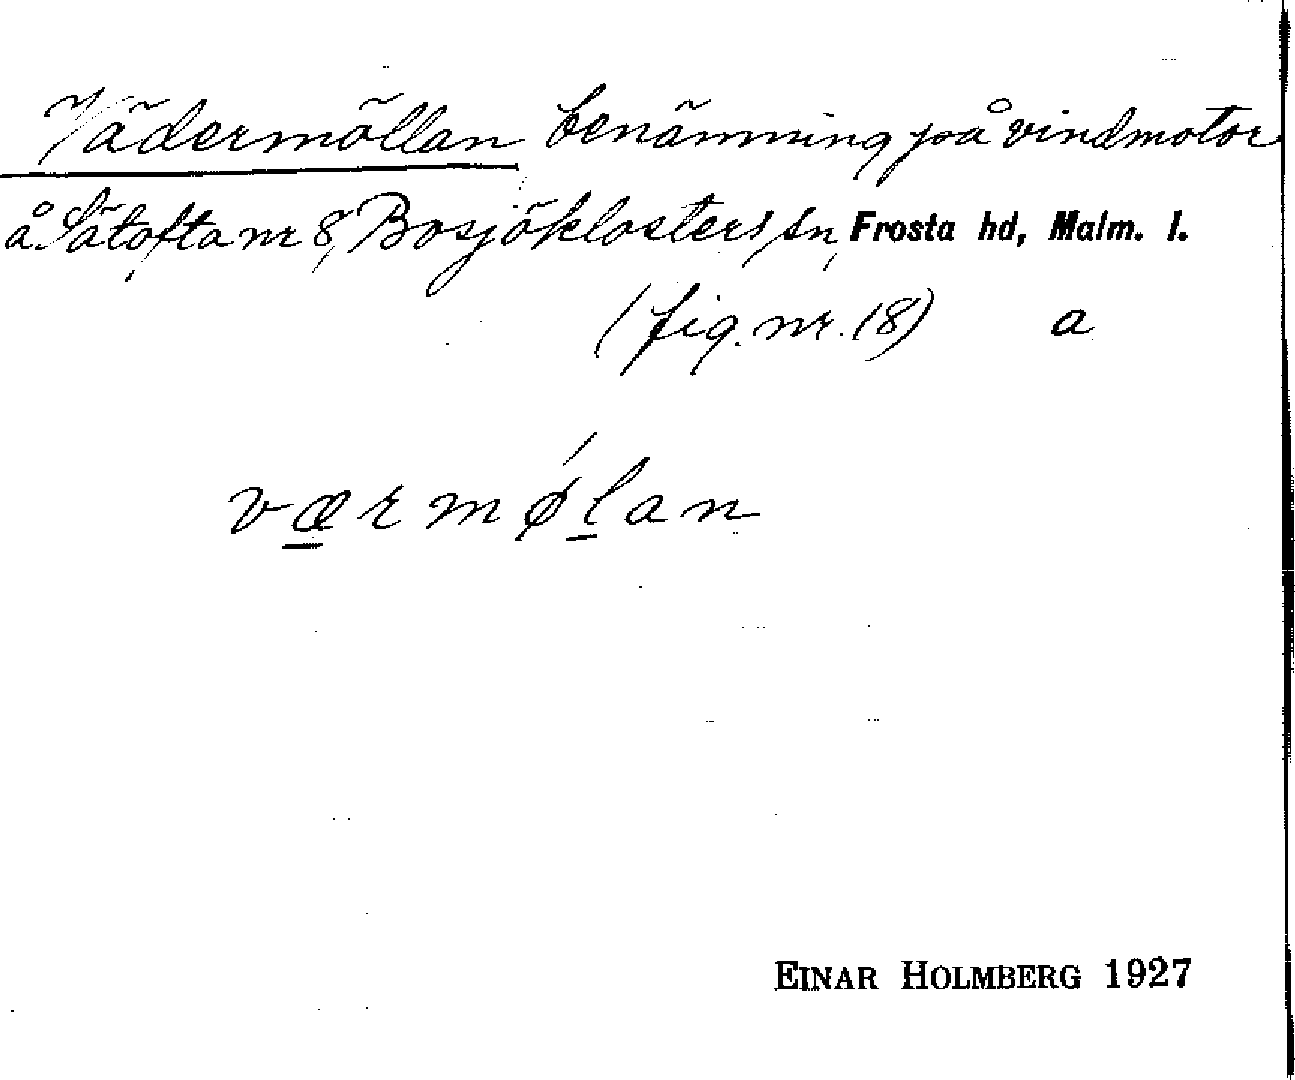 Vädermöllan benämning på vindmotor
å Sätofta nr 8, Bosjöklosters sn, Frosta hd, Malm. l.
(fig. nr. 18) a
værmǿlan
EINAR HOLMBERG 1927